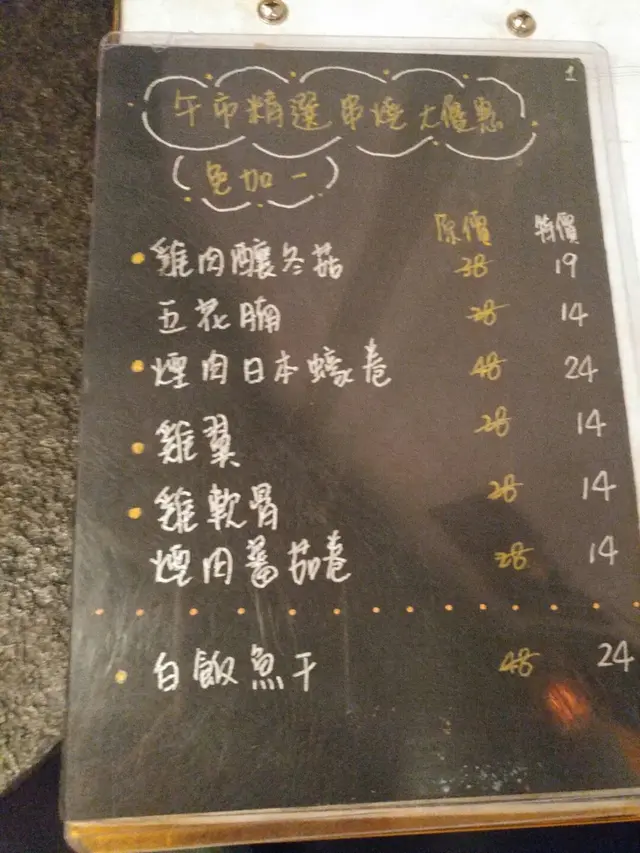 1
午市精選串燒大優惠
免加一
原價 特價
• 雞肉釀冬菇 38 19
五花腩 28 14
• 煙肉日本蠔卷 48 24
• 雞翼 28 14
• 雞軟骨 28 14
煙肉蕃茄卷 28 14
• 白飯魚干 48 24